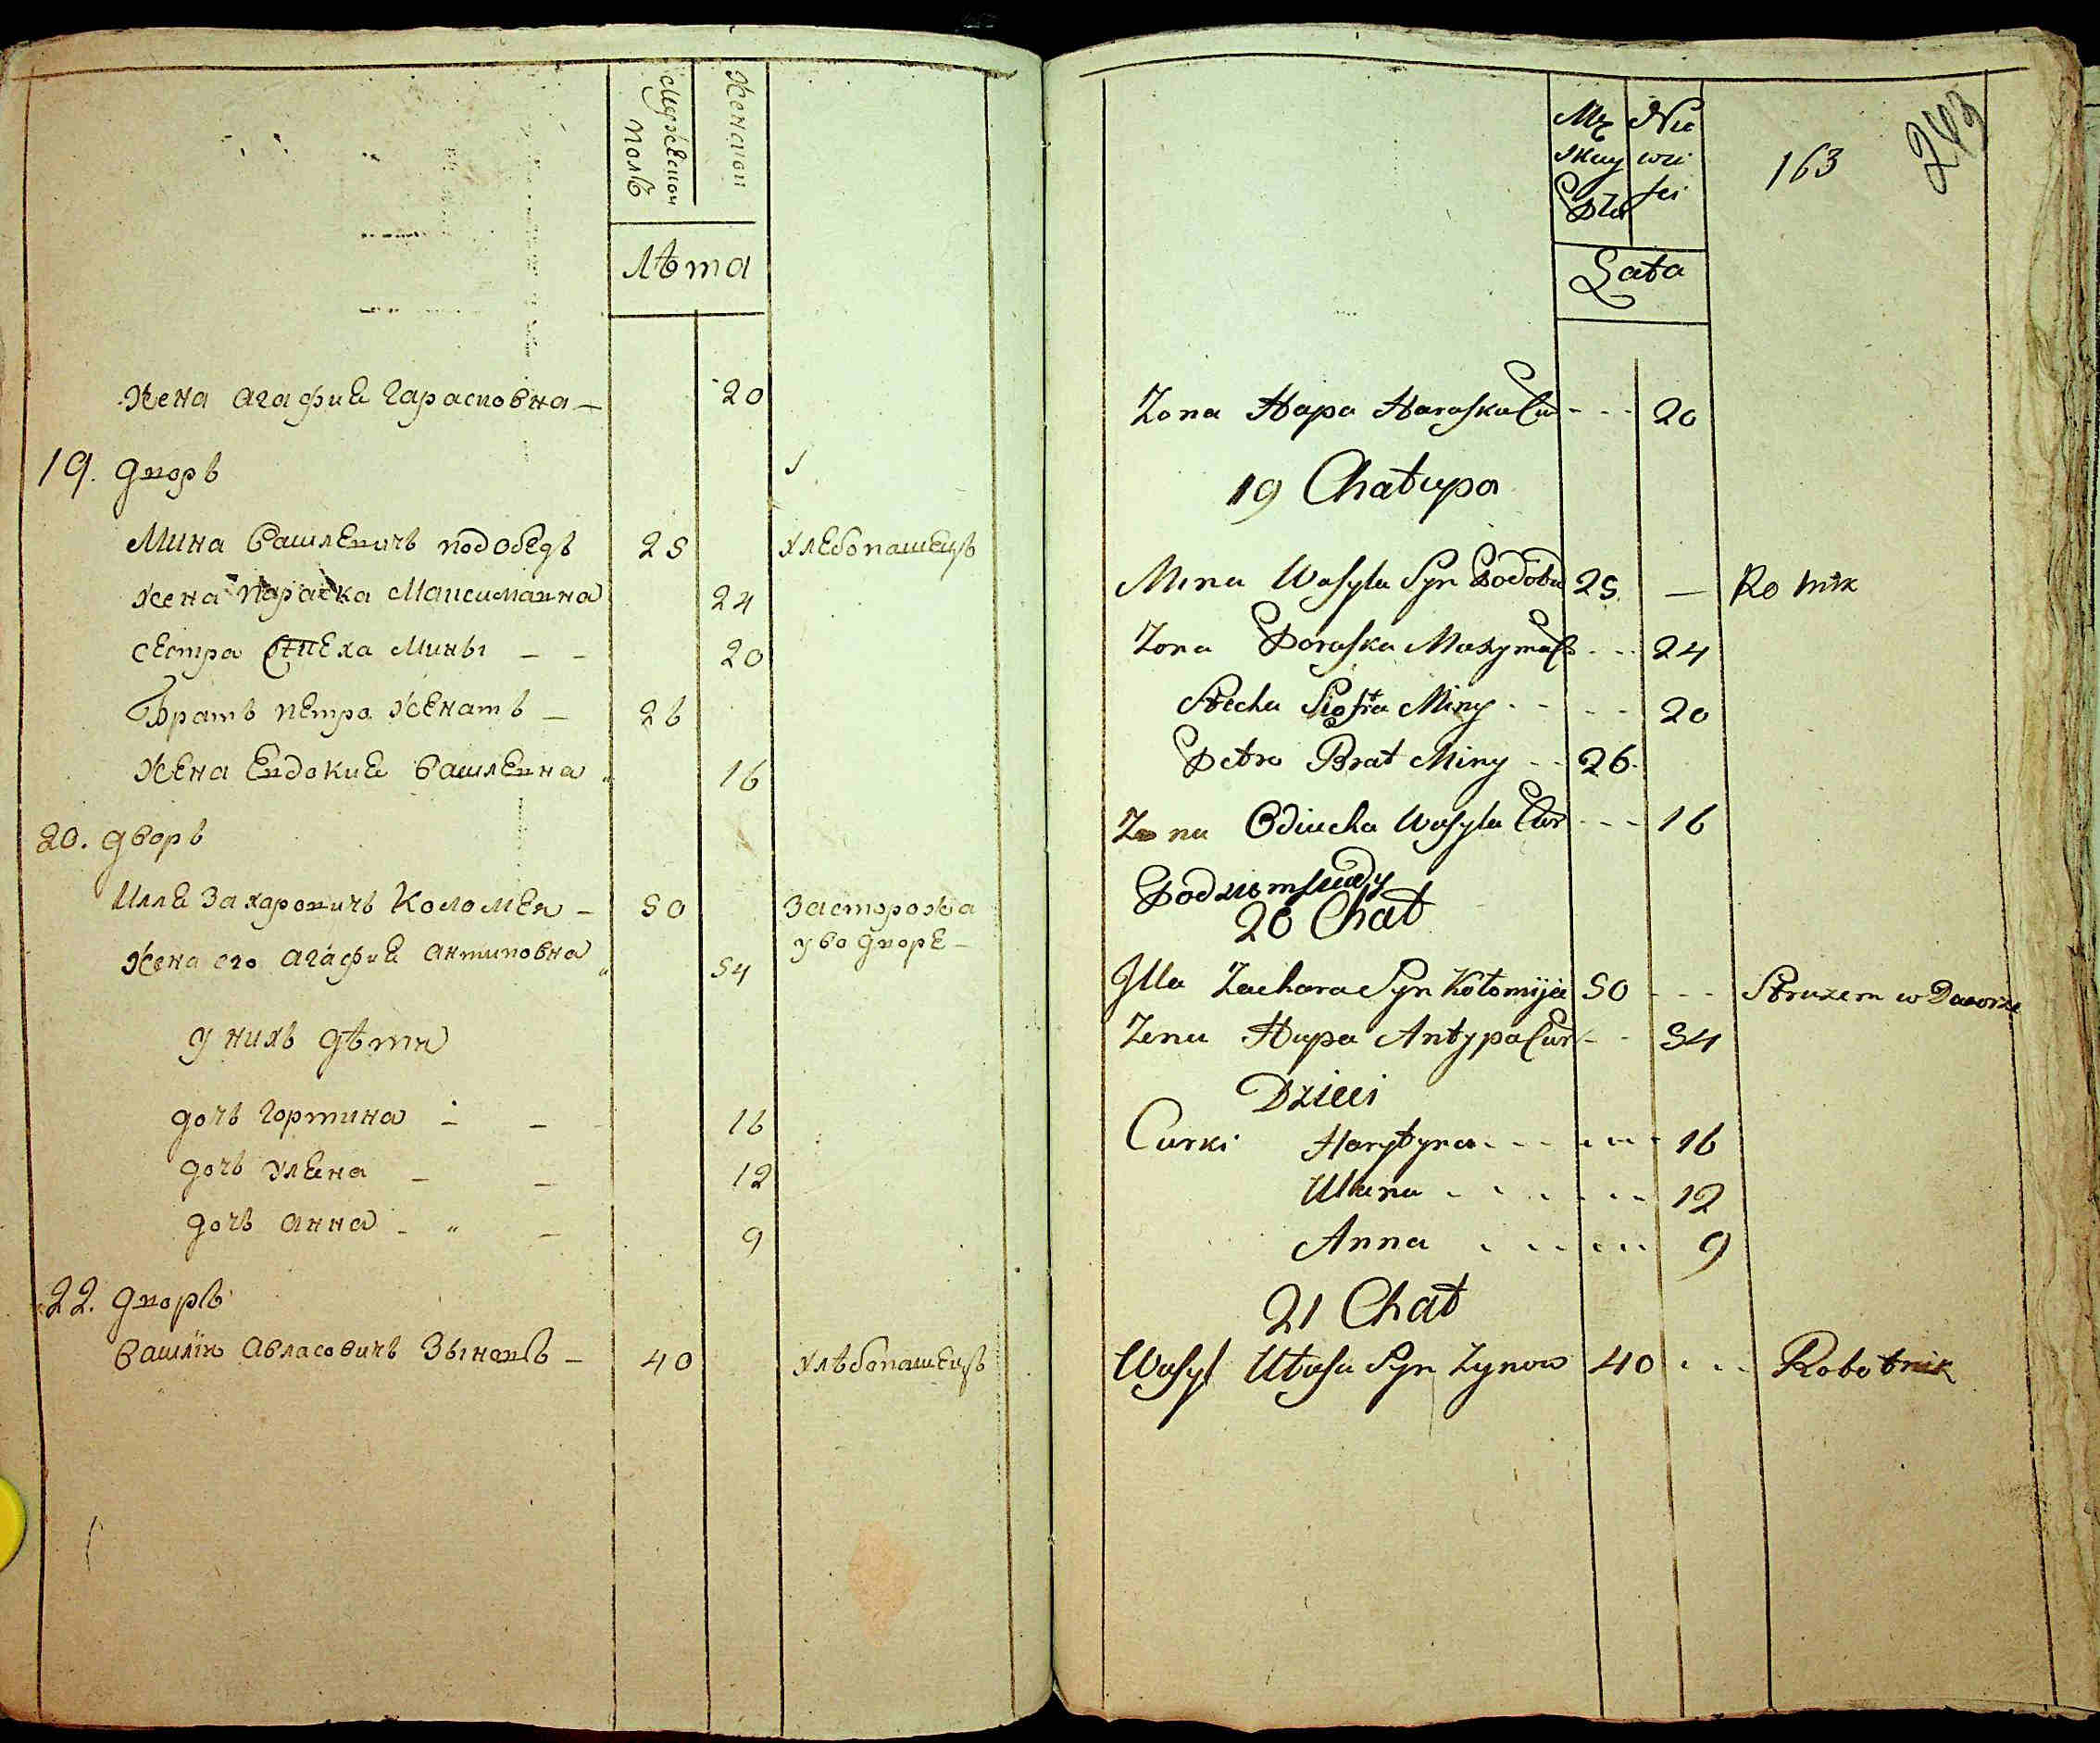 Мужеском
полѣ
Женском
Лѣта
Жена Агафиа Гарасковна — 20
19. дворъ
Мина Василевичъ подобедъ 25 хлебопашецъ
Жена Параска Максимовна 24
сестра Стеха Мины — — 20
Братъ петро женатъ — 26
Жена Евдокиа Василевна 16
20. дворъ
Илла Захаровичъ Коломея — 50 За сторожа
у во дворе —
Жена его Агафиа Антиповна 54
у нихъ дѣти
дочь Гортина — — 16
дочь Улеана — — 12
дочь Анна — „ — 9
22. дворъ
Василъ Авласовичъ Зыновъ — 40 хлѣбопашецъ
Mę
skiey
Płci
Nie
wie
sci
163
243
Lata
Zona Hapa Haraska Cur - - - 20
19 Chałupa
Mina Wasyla Syn Podobed 25 — Ro tnik
Zona Paraska Maxyma C - - - 24
Stecha Siostra Miny - - - - 20
Petro Brat Miny - - 26
Zona Odiucha Wasyla Cur - - - 16
20 Chat
Illa Zachara Syn Kołomyja 50 - - - Struzem w Dworze
Zona Hapa Antypa Cur - - 54
Dzieci
Curki Harytyna - - - - - - 16
Ulana - - - - - - 12
Anna - - - - - - 9
21 Chat
Wasyl Własa Syn Zynow 40 - - - Robotnik